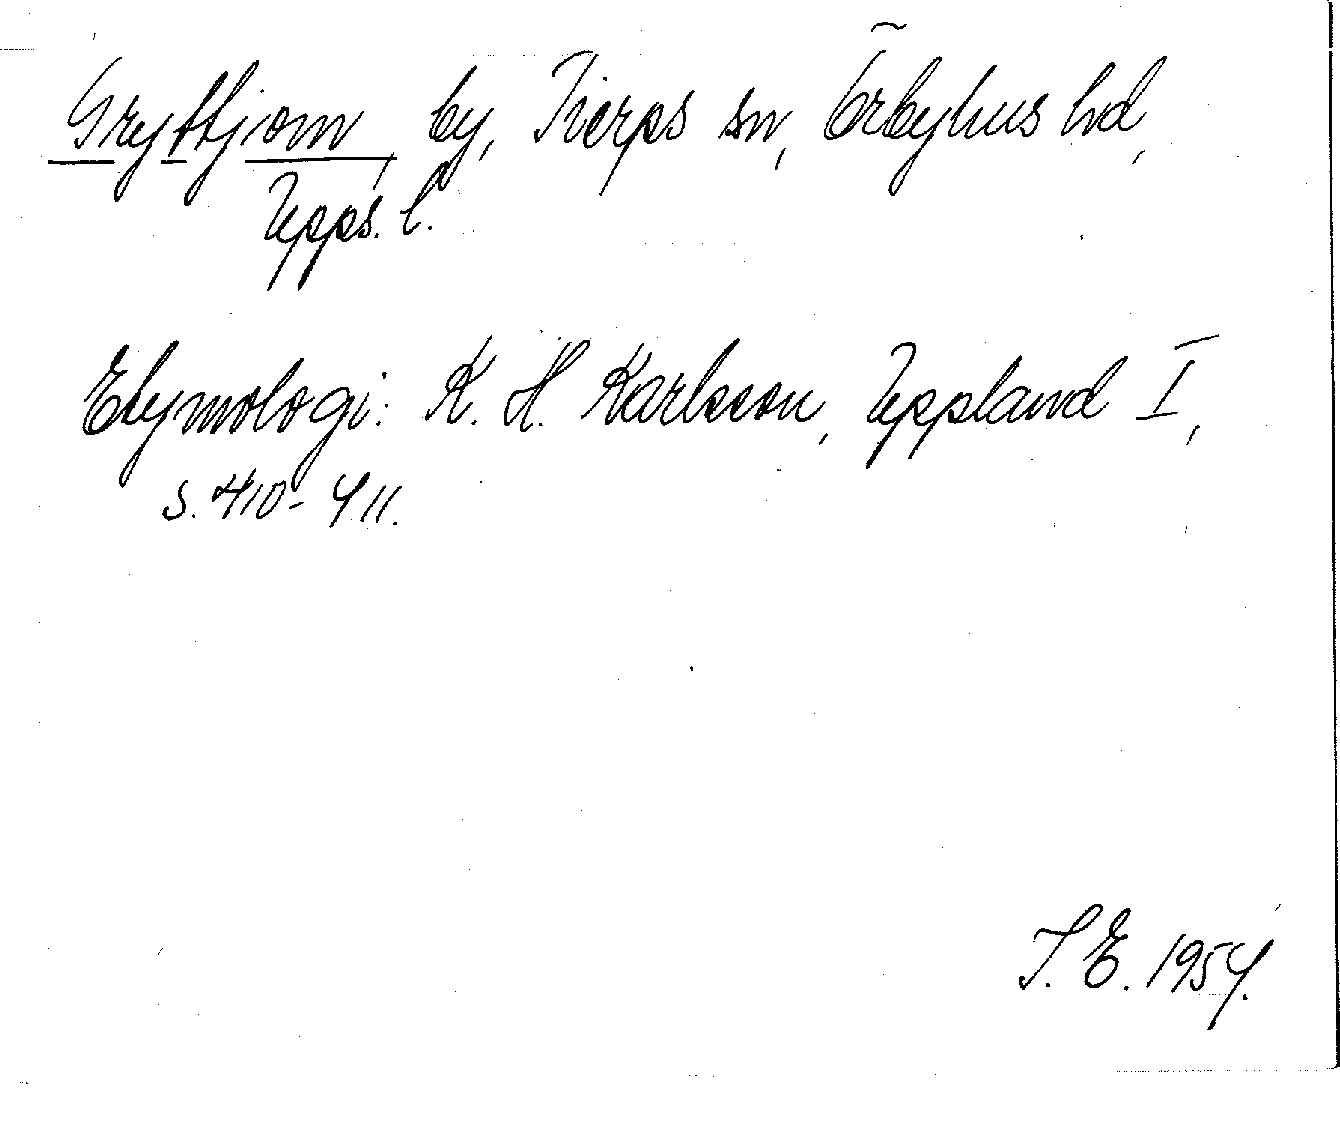 Gryttjom, by, Tierps sn, Örbyhus hd,
Upps. l.
Etymologi: K. H. Karlsson, Uppland I,
s. 410-411.
S. E. 1954.